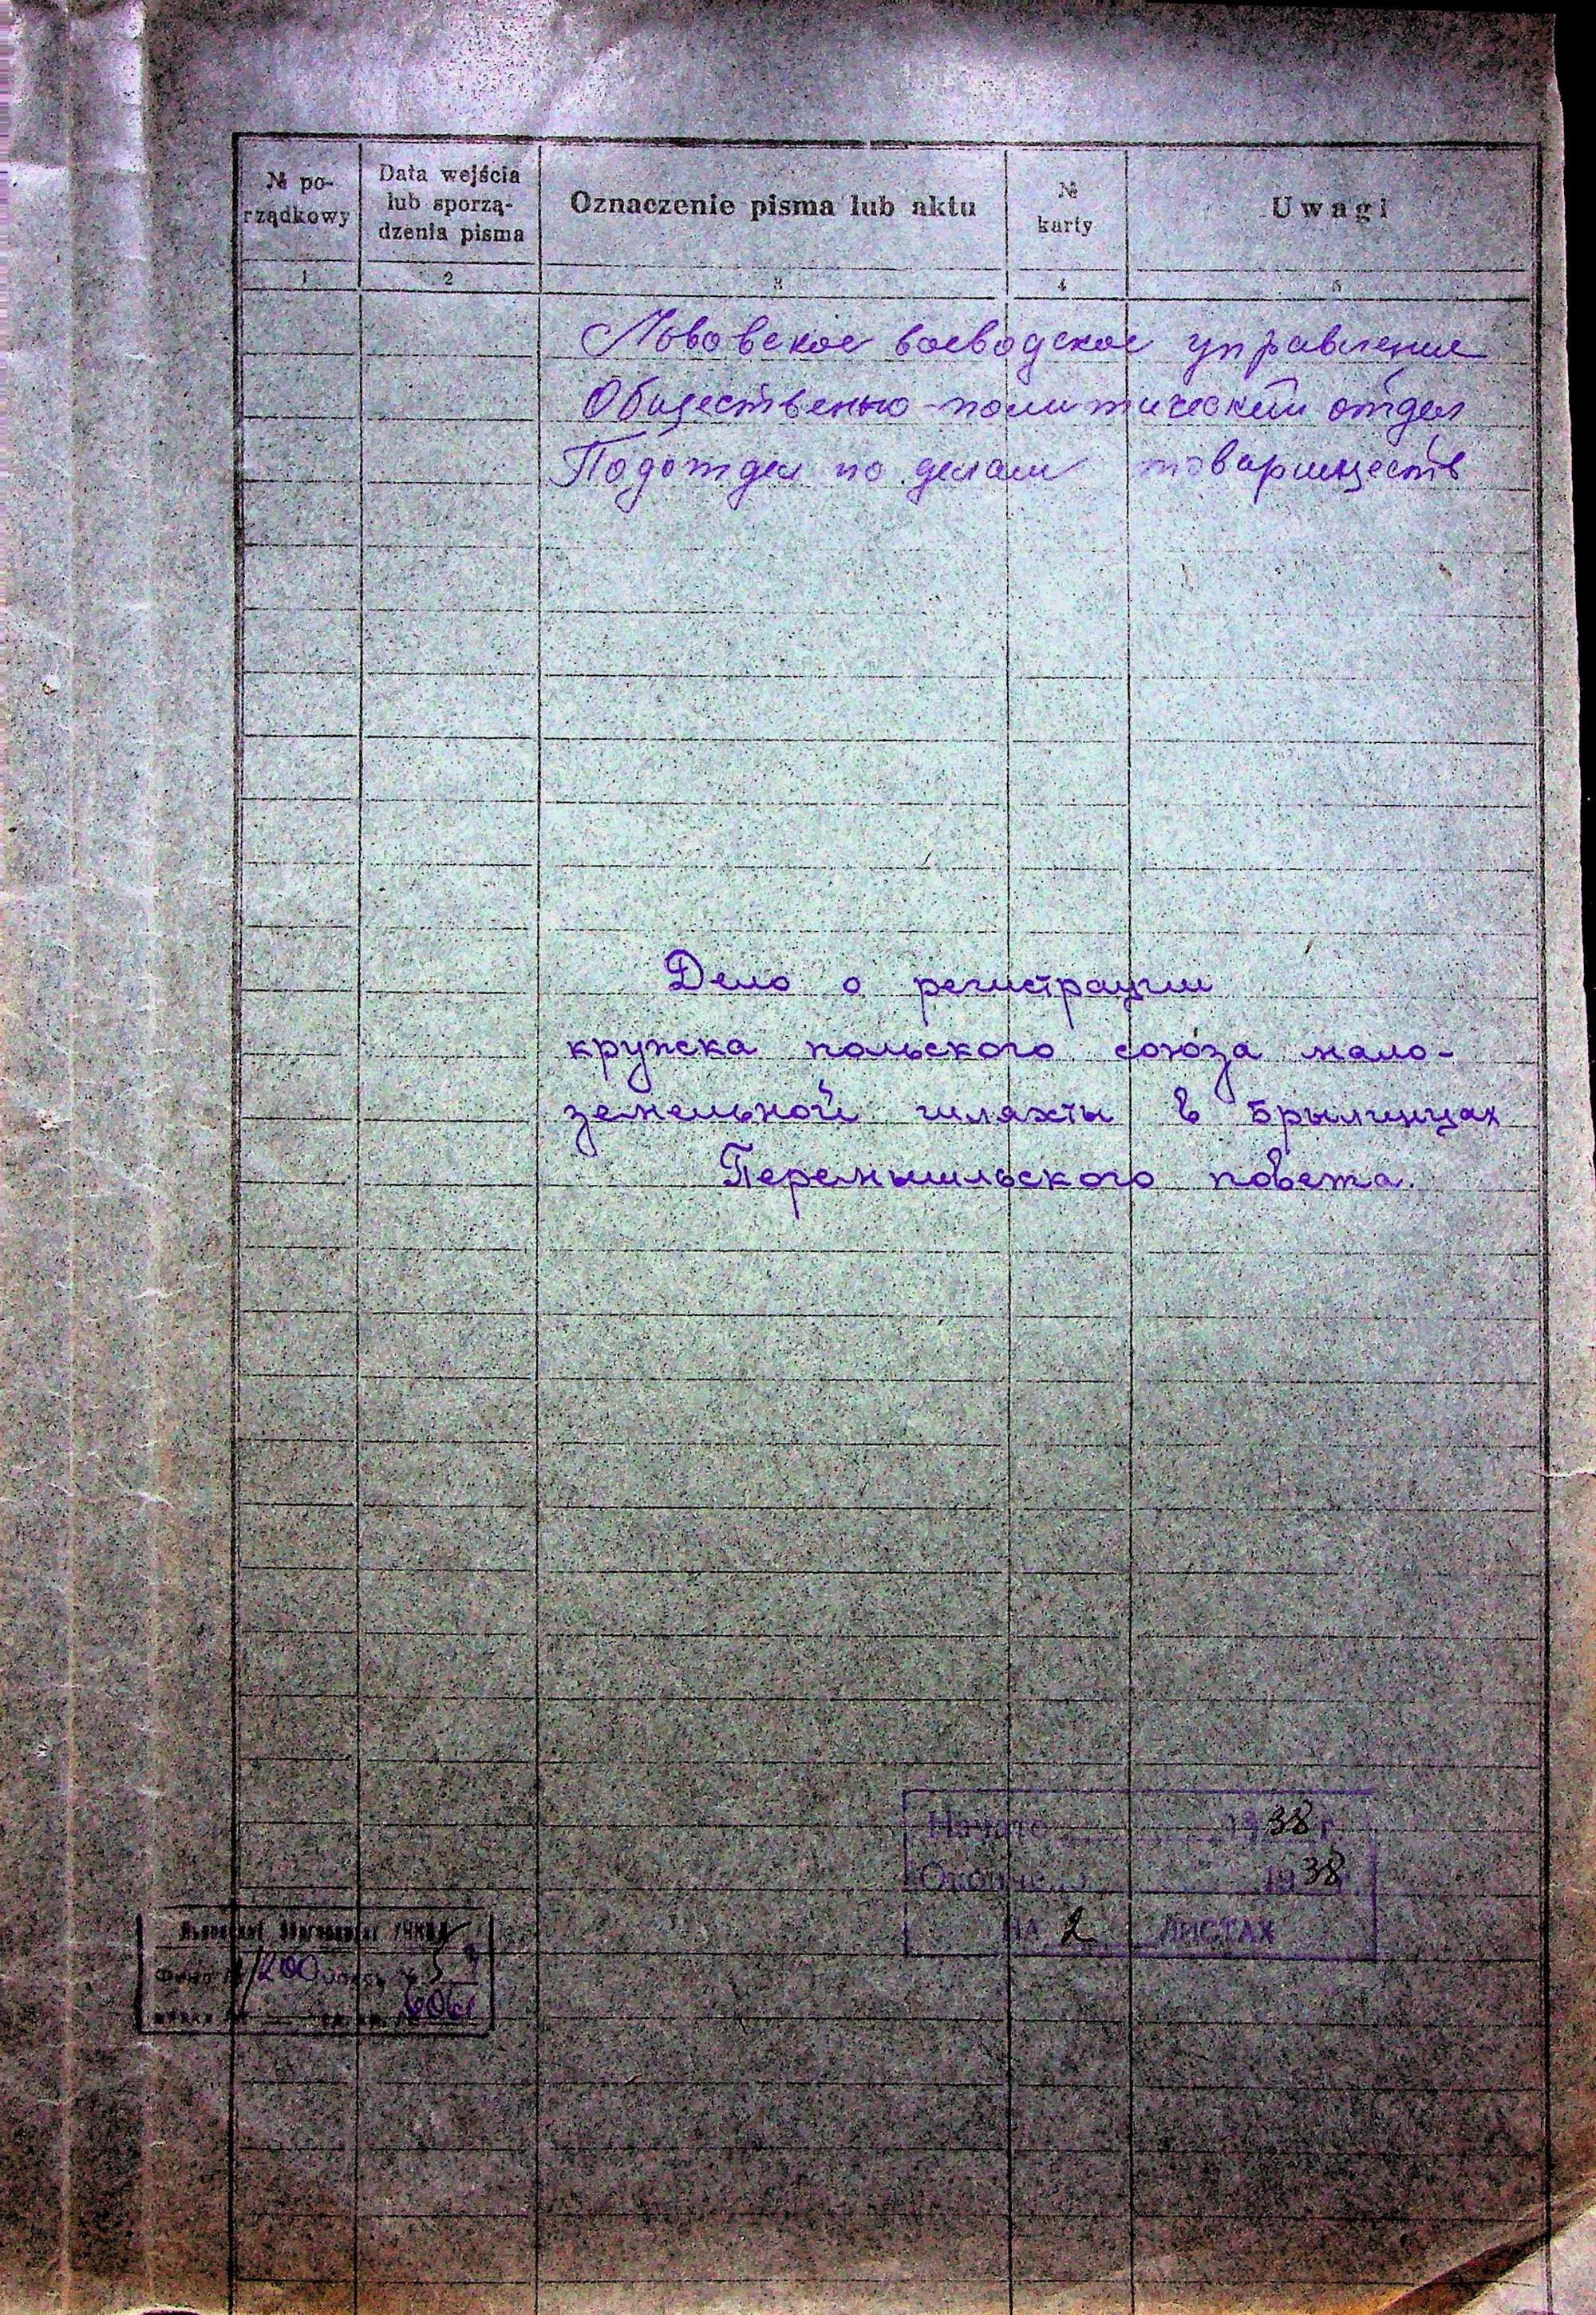 № po-
rządkowy
Data wejścia
lub sporzą-
dzenia pisma
Oznaczenie pisma lub aktu
№
karty
Uwagi
1 2 3 4 5
Львовское воеводское управление
Общественно-политический отдел
Подотдел по делам товариществ
Дело о регистрации
кружка польского союза мало-
земельной шляхты в Брылинцах
Перемышльского повета.
Начато 1938 г.
Окончено 1938 г.
НА 2 ЛИСТАХ
Фонд № 1/200 опись №